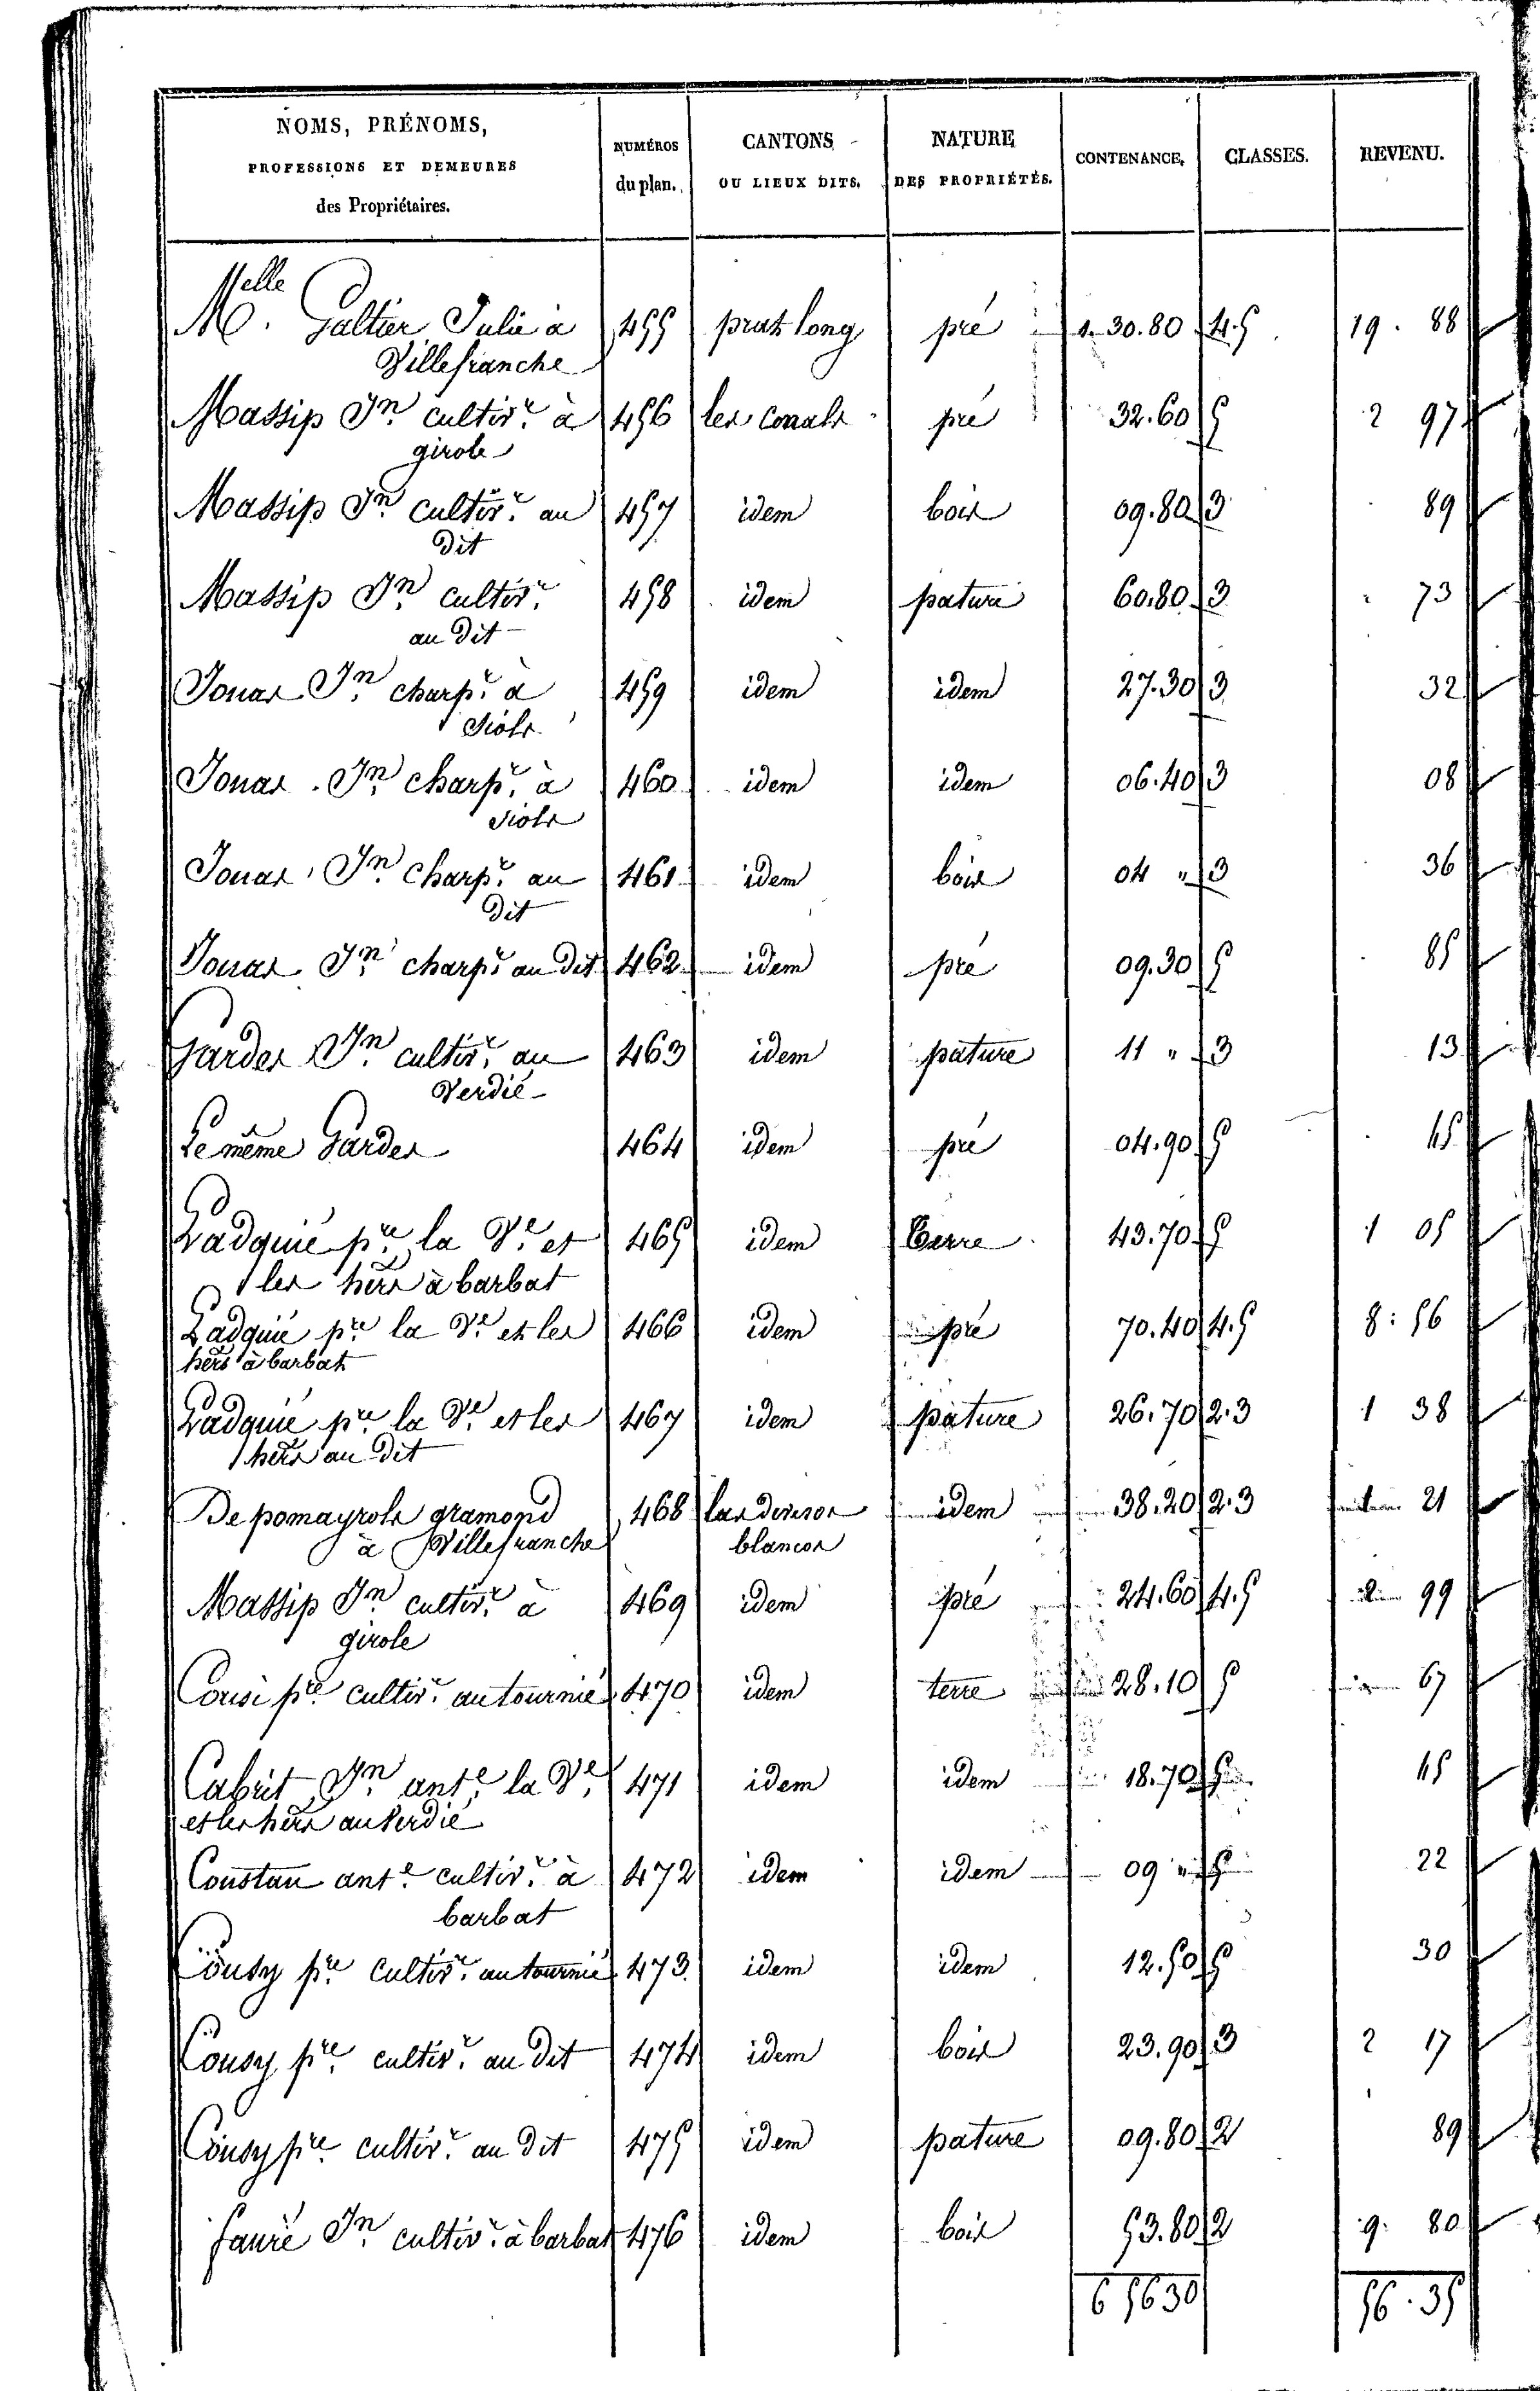 NOMS, PRÉNOMS,
PROFESSIONS ET DEMEURES
des Propriétaires.
NUMÉROS
du plan.
CANTONS
OU LIEUX DITS.
NATURE
DES PROPRIÉTÉS.
CONTENANCE.
CLASSES.
REVENU.
Melle Galtier Julie à 455 prat long pré 1. 30. 80 4.5 19. 88
Villefranche
Massip Jn cultivr à 456 les conals pré 32. 60 5 2 97
girole
Massip Jn cultivr au 457 idem bois 09. 80 3 89
dit
Massip Jn cultivr 458 idem pature 60. 80 3 73
au dit
Jouas Jn charpr à 459 idem idem 27. 30 3 32
Siols
Jouas Jn charpr à 460 idem idem 06. 40 3 08
Siols
Jouas Jn charpr au 461 idem bois 04 " 3 36
dit
Jouas Jn charpr au dit 462 idem pré 09. 30 5 85
Gardes Jn cultivr au 463 idem pature 11 " 3 13
Verdié
Le même Gardes 464 idem pré 04. 90 5 45
Ladquié pre la Ve et 465 idem Terre 43. 70 5 1 05
les hers à barbat
Ladquié pre la Ve et les 466 idem pré 70. 40 4.5 8: 56
hers à barbat
Ladquié pre la Ve et les 467 idem pature 26. 70 2.3 1 38
hers au dit
De pomayrols gramond 468 las idem 38. 20 2.3 21
à Villefranche blancos
Massip Jn cultivr à 469 idem pré 24. 60 4.5 99
girole
Cousi pre cultivr au tournié 470 idem terre 28. 10 5 67
Cabrit Jn ante la Ve 471 idem idem 18. 70 5 45
et les hers au Verdié
Coustau ante cultivr à 472 idem idem 09 " 5 22
barbat
Cousy pre cultivr au tournié 473 idem idem 12. 50 5 30
Cousy pre cultivr au dit 474 idem bois 23. 90 3 2 17
Cousy pre cultivr au dit 475 idem pature 09. 80 2 89
fauré Jn cultivr à barbat 476 idem bois 53. 80 2 9. 80
6 5630 56. 35